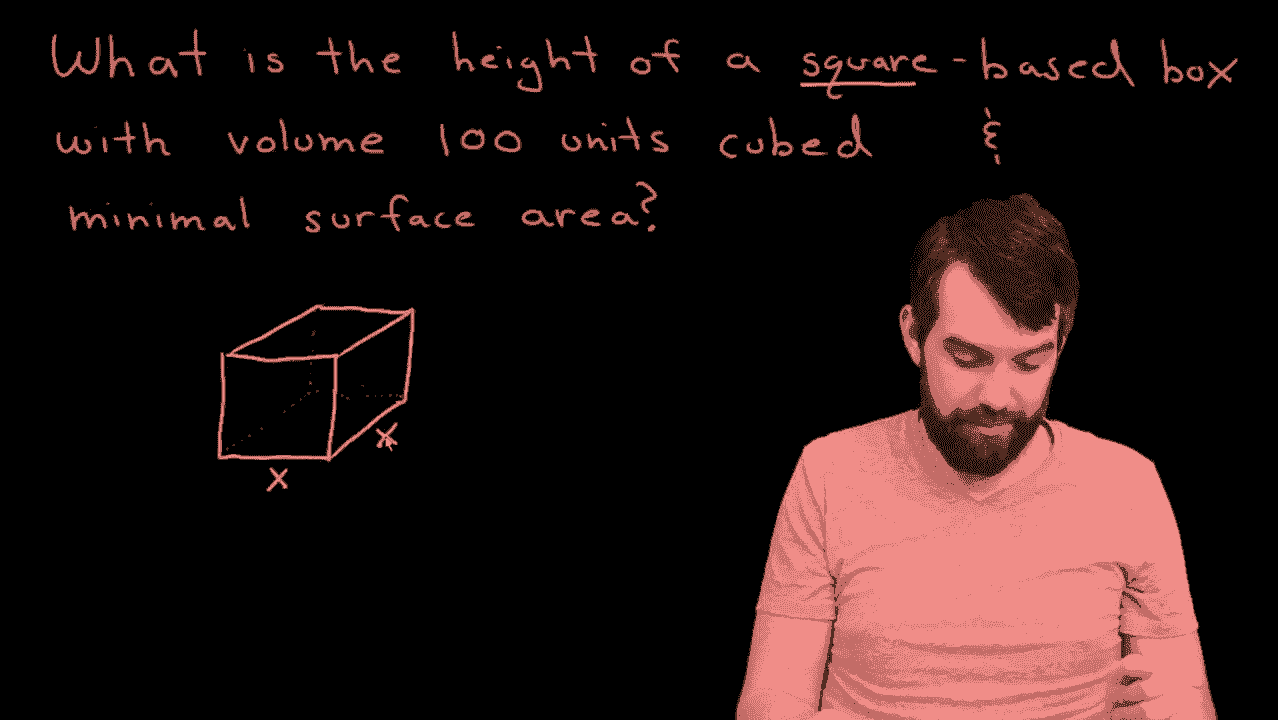 What is the height of a square-based box
with volume 100 units cubed &
minimal surface area?
x
x